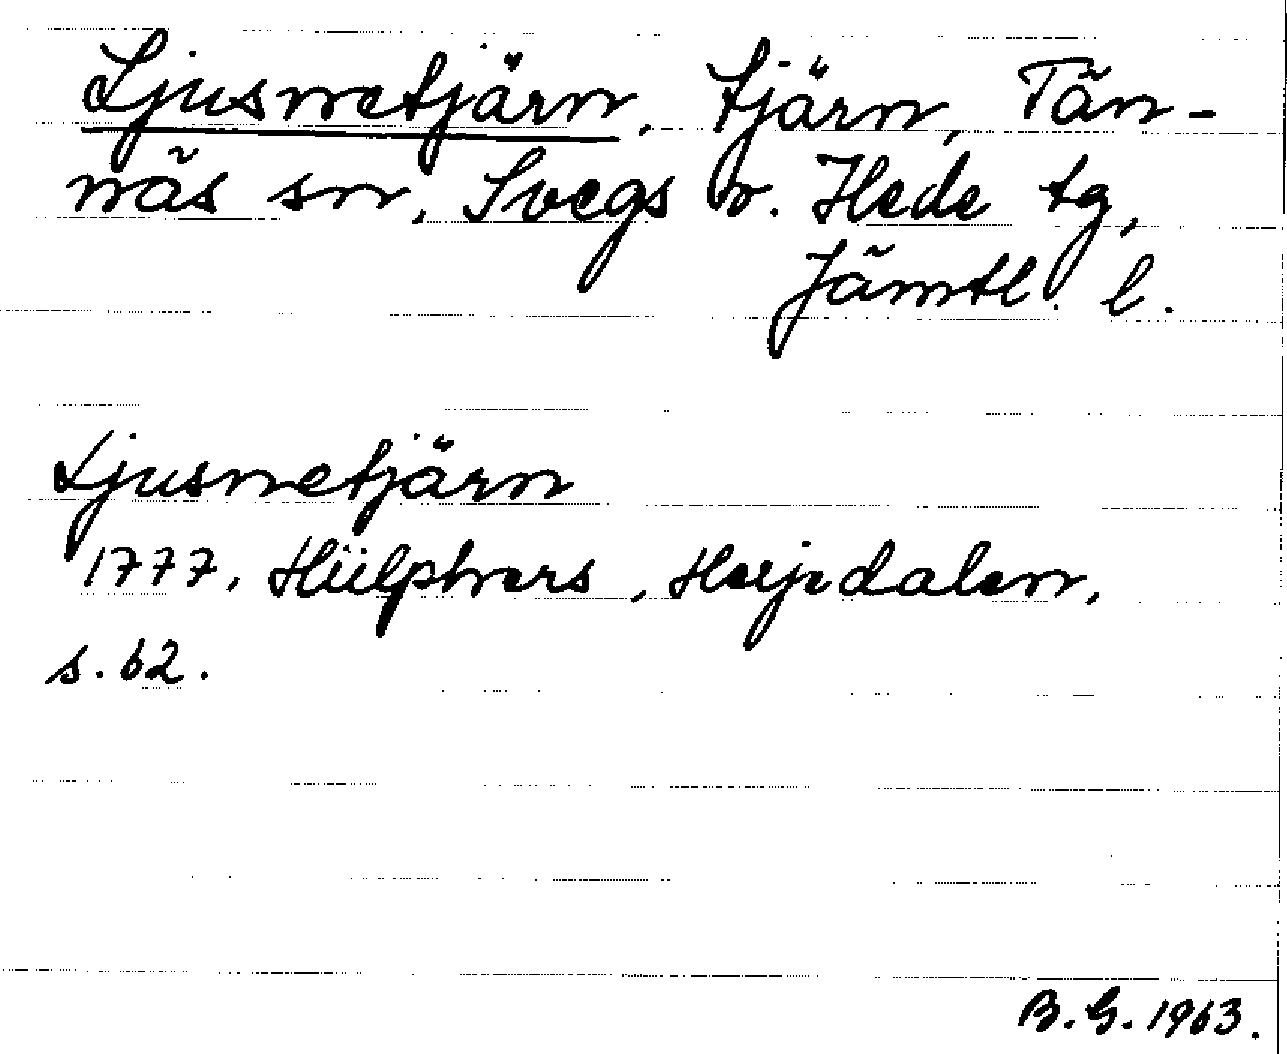 Ljusnetjärn, tjärn, Tän-
näs sn, Svegs o. Hede tg,
Jämtl. l.
Ljusnetjärn
1777, Hülphers, Herjedalen,
s. 62.
B. G. 1963.